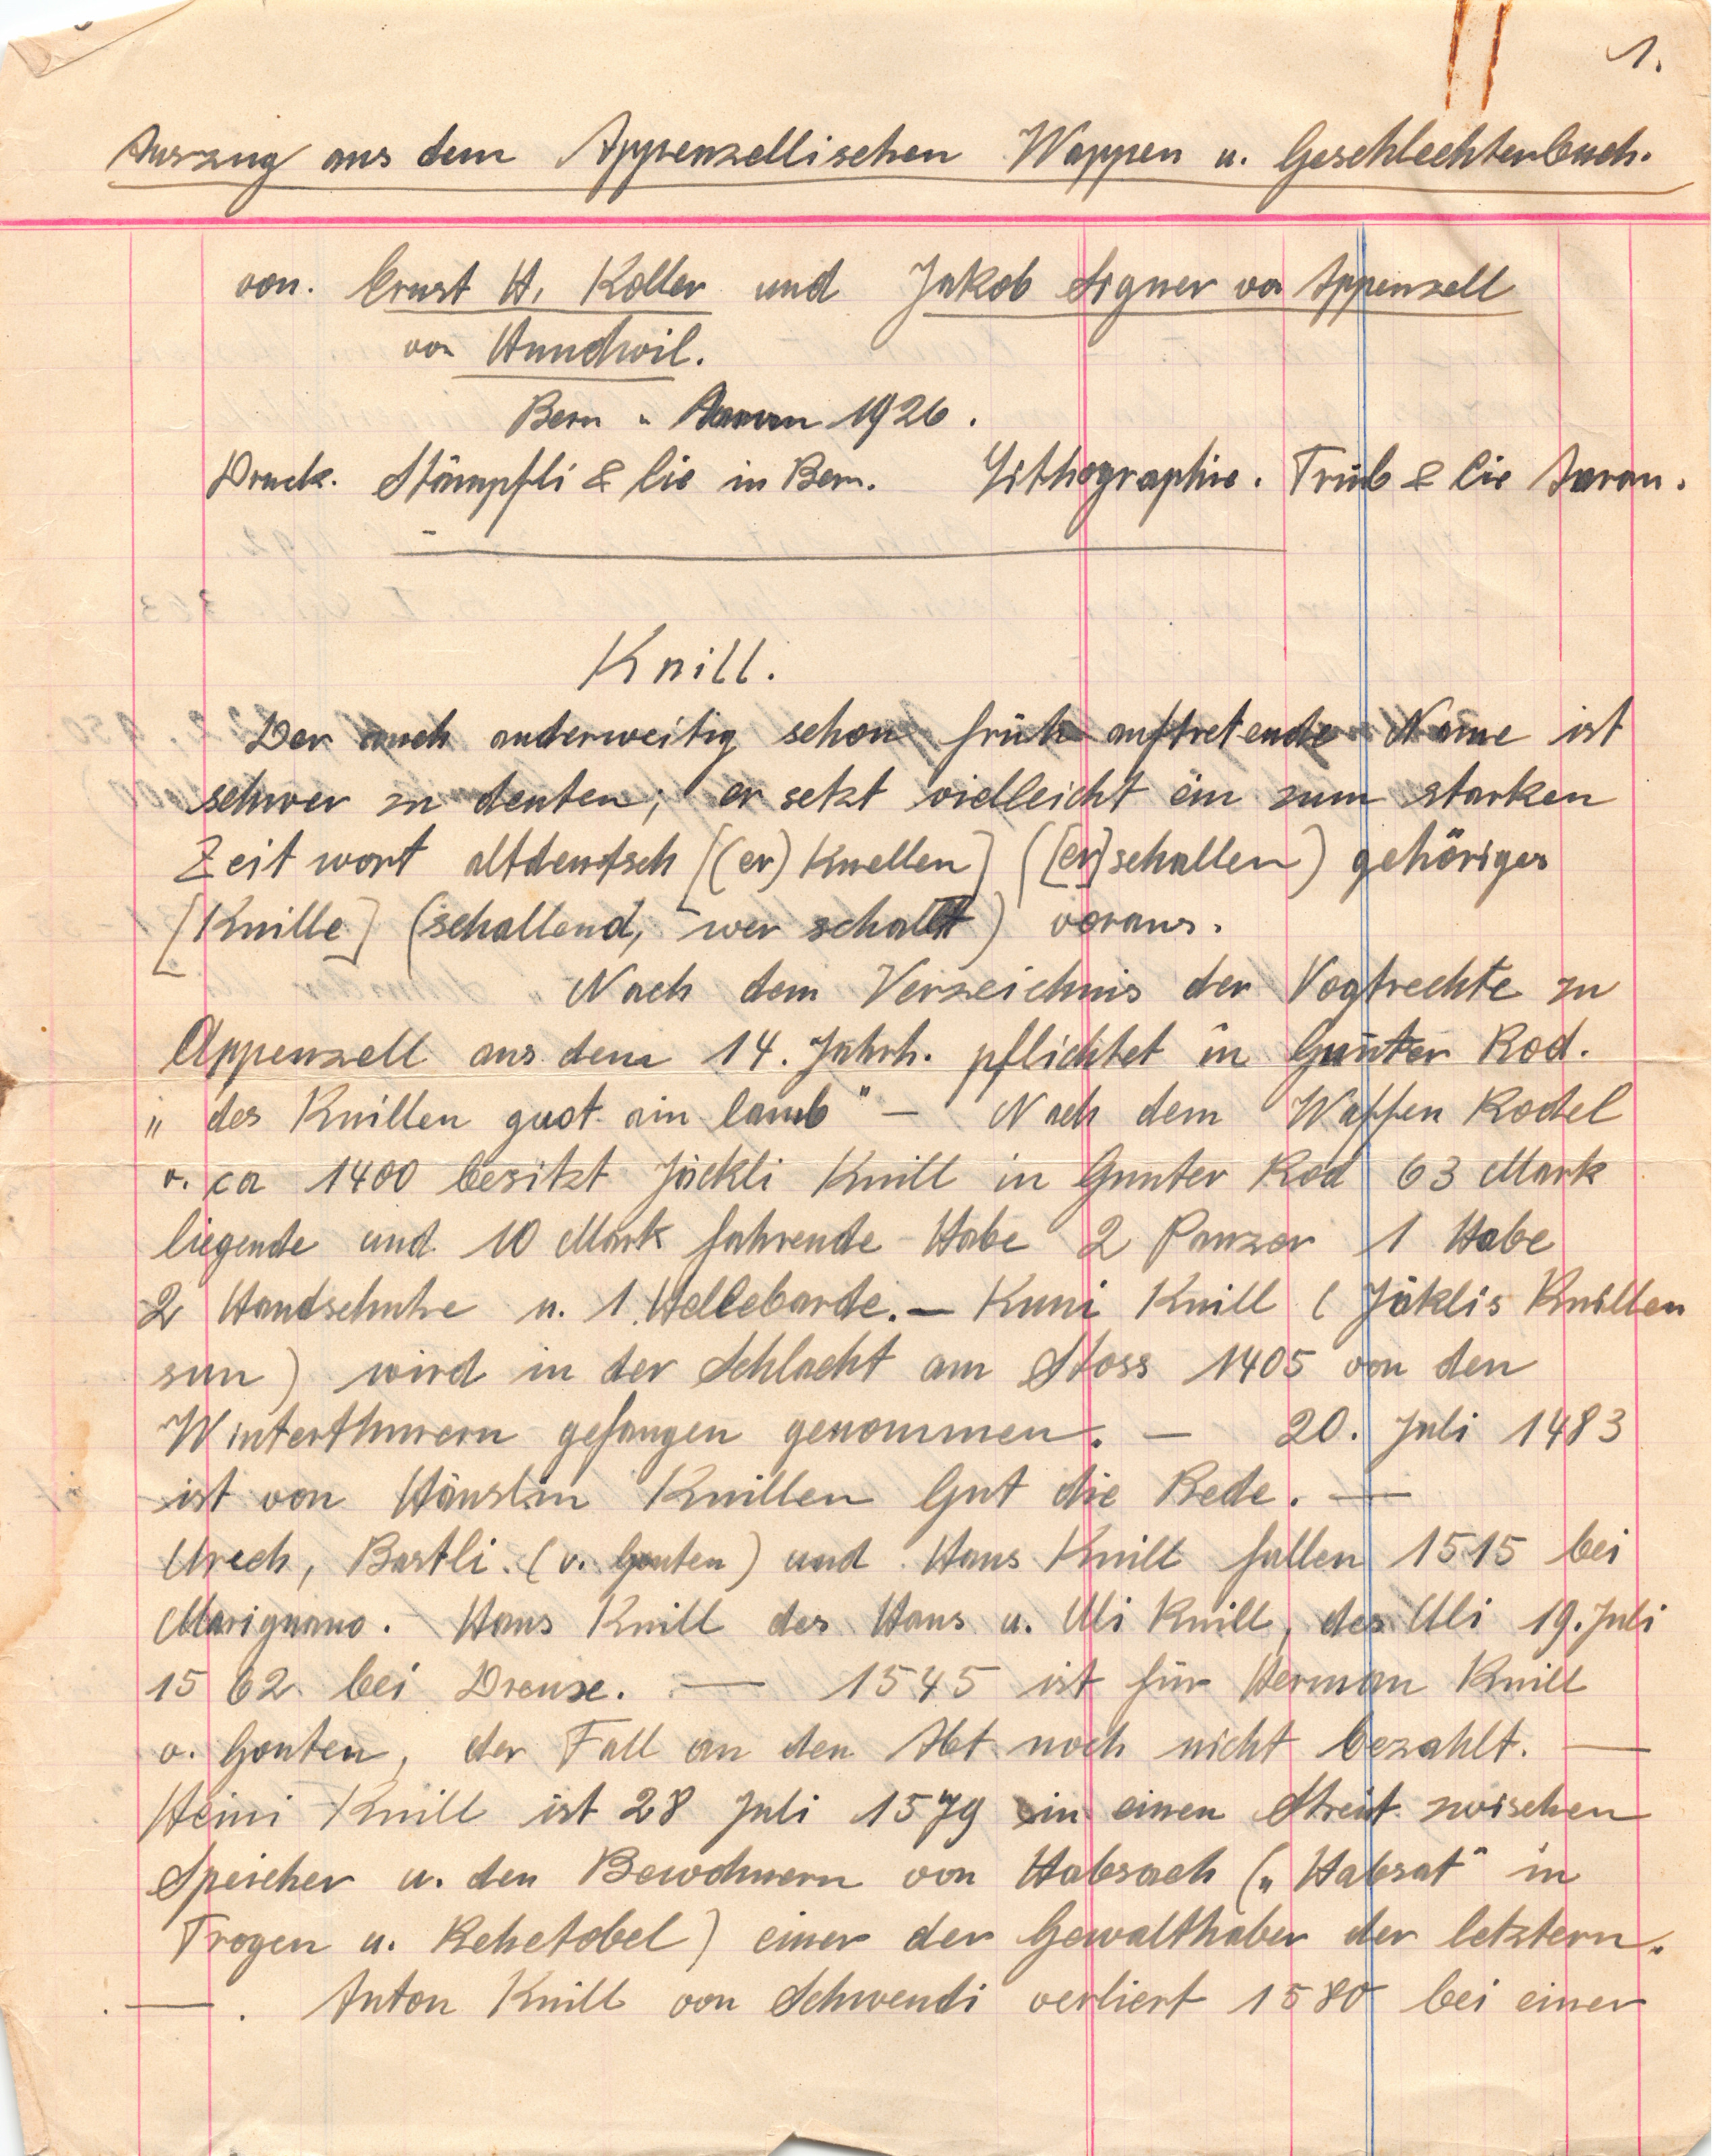 1.
Auszug aus dem Appenzellischen Wappen u. Geschlechterbuch.
von. Ernst H. Koller und Jakob Signer von Appenzell
von Hundwil.
Bern u Aarau 1926.
Druck. Stämpfli & Cie in Bern. Lithographie. Trüb & Cie Aarau.
Knill.
Der auch anderweitig schon früh auftretende Name ist
schwer zu deuten; er setzt vielleicht ein zum starken
Zeitwort altdeutsch [(er) Knellen] ([er]schallen) gehöriges
[Knille] (schallend, wer schallt) voraus.
Nach dem Verzeichnis der Vogtrechte zu
Appenzell aus dem 14. Jahrh. pflichtet in Gunter Rod.
„ des Knillen guot ain lamb" — Nach dem Waffen Rodel
v. ca 1400 besitzt Jäckli Knill in Gunter Rod 63 Mark
liegende und 10 Mark fahrende Habe 2 Panzer 1 Habe
2 Handschuhe u. 1 Hellebarde. — Kuni Knill (Jäklis Knillen
sun) wird in der Schlacht am Stoss 1405 von den
Winterthurern gefangen genommen. — 20. Juli 1483
ist von Hänslin Knillen Gut die Rede. —
Urech, Bartli. (v. Gonten) und Hans Knill fallen 1515 bei
Marignano. Hans Knill des Hans u. Uli Knill, des Uli 19. Juli
1562 bei Dreuse. — 1545 ist für Herman Knill
v. Gonten, der Fall an den Abt noch nicht bezahlt. —
Heini Knill ist 28 Juli 1579 in einen Streit zwischen
Speicher u. den Bewohnern von Habsach („Habsat" in
Trogen u. Rehetobel) einer der Gewalthaber der letztern.
. — . Anton Knill von Schwendi verliert 1580 bei einer